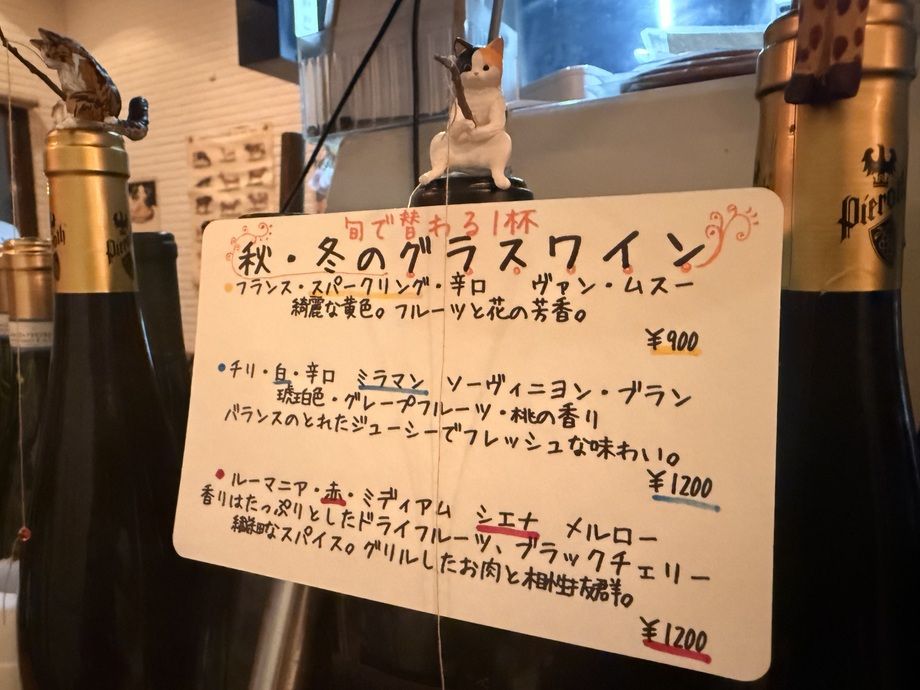 旬で替わる1杯
秋・冬のグラスワイン
フランス・スパークリング・辛口 ヴァン・ムスー
綺麗な黄色。フルーツと花の芳香。
¥900
チリ・白・辛口 ミラマン ソーヴィニヨン・ブラン
琥珀色・グレープフルーツ・桃の香り
バランスのとれたジューシーでフレッシュな味わい。
¥1200
ルーマニア・赤・ミディアム シエナ メルロー
香りはたっぷりとしたドライフルーツ、ブラックチェリー
繊細なスパイス。グリルしたお肉と相性抜群。
¥1200
Pieroth